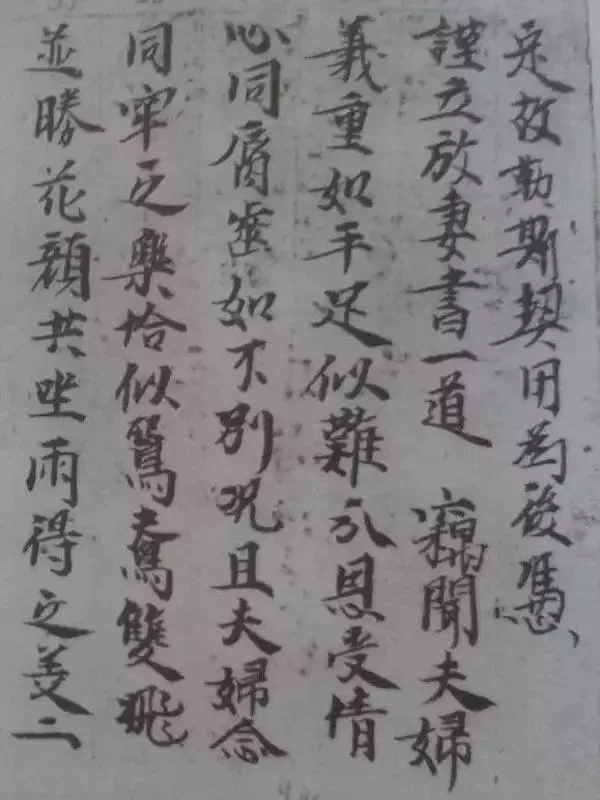 定故勒斯契用為後憑
謹立放妻書一道 竊聞夫婦
義重如手足似難分恩愛情
心同唇齒如不別況且夫婦念
同牢之樂恰似鴛鴦雙飛
並勝花顏共坐兩得之美二